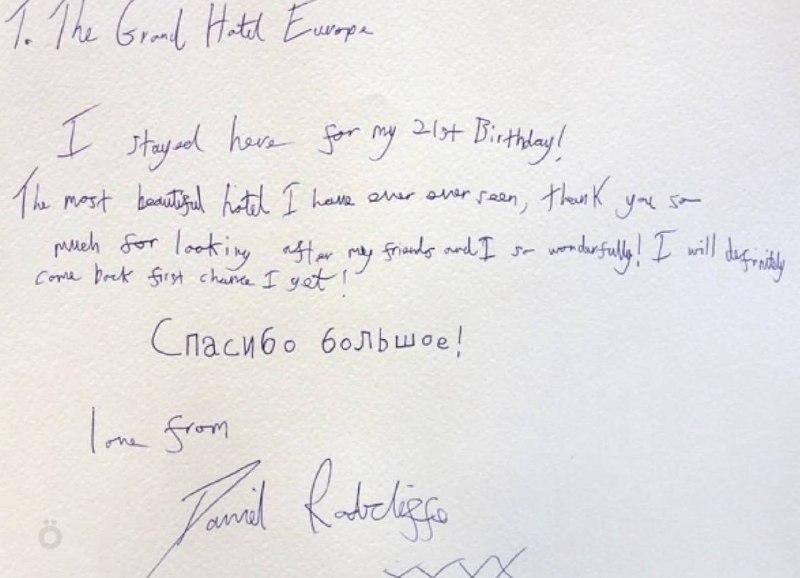 T. The Grand Hotel Europe
I stayed here for my 21st Birthday!
The most beautiful hotel I have ever ever seen, thank you so
much for looking after my friends and I so wonderfully! I will definitely
come back first chance I get!
Спасибо большое!
love from
Daniel Radcliffe
xxxx
Ö